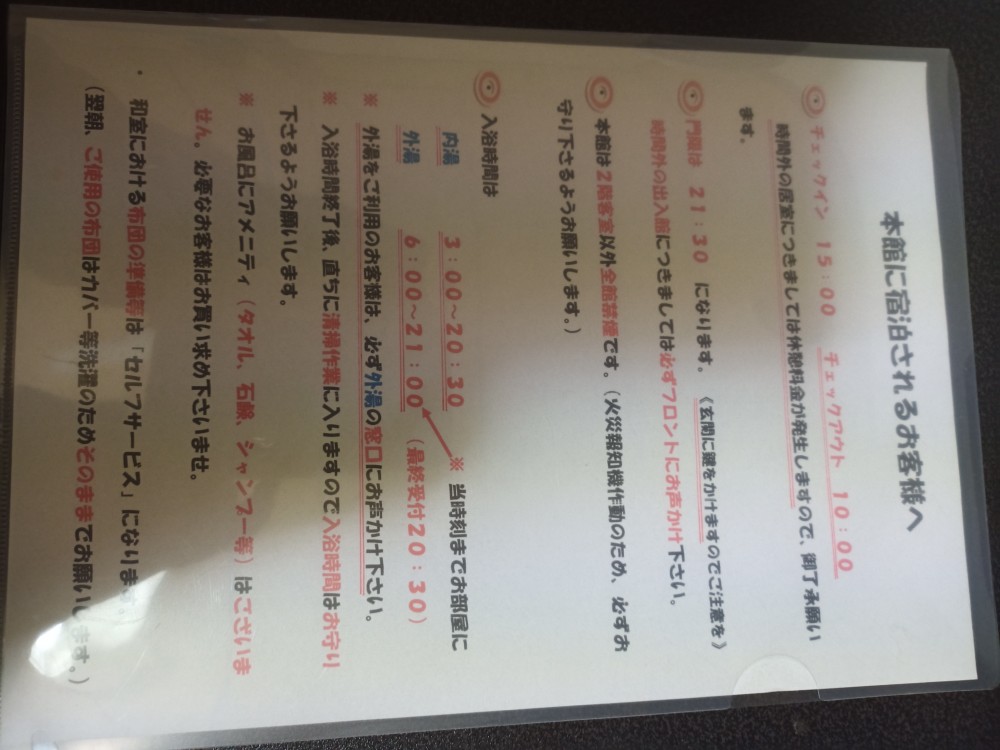 本館に宿泊されるお客様へ
チェックイン 15:00 チェックアウト 10:00
時間外の居室につきましては休憩料金が発生しますので、御了承願い
ます。
門限は 21:30 になります。《玄関に鍵をかけますのでご注意を》
時間外の出入館につきましては必ずフロントにお声かけ下さい。
本館は2階客室以外全館禁煙です。(火災報知機作動のため、必ずお
守り下さるようお願いします。)
入浴時間は
内湯 3:00~20:30 ※ 当時刻までお部屋に
外湯 6:00~21:00 (最終受付20:30)
※ 外湯をご利用のお客様は、必ず外湯の窓口にお声かけ下さい。
※ 入浴時間終了後、直ちに清掃作業に入りますので入浴時間はお守り
下さるようお願いします。
※ お風呂にアメニティ(タオル、石鹸、シャンプー等)はございま
せん。必要なお客様はお買い求め下さいませ。
・ 和室における布団の準備等は「セルフサービス」になります。
(翌朝、ご使用の布団はカバー等洗濯のためそのままでお願いします。)